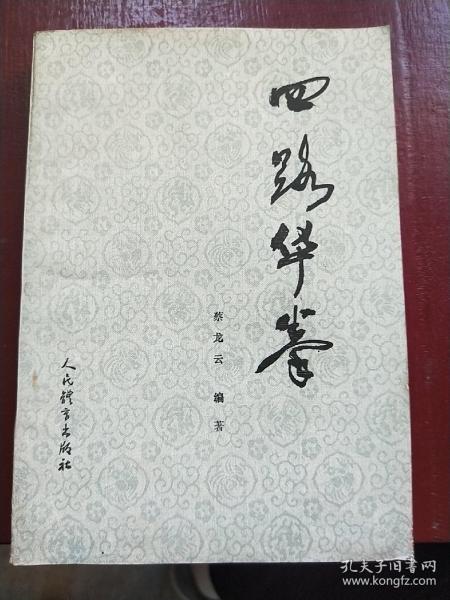 四路华拳
蔡龙云 编著
人民體育出版社
孔夫子旧书网
www.kongfz.com